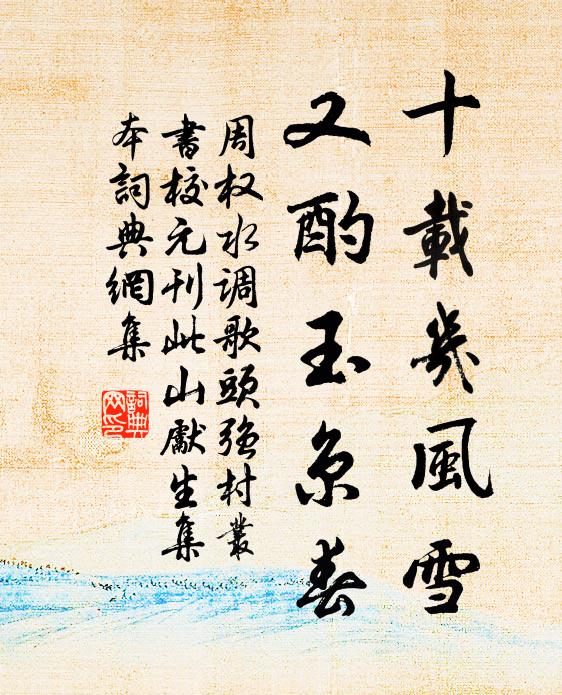 十載幾風雪
又酌玉京春
周权水调歌頭强村叢
書校元刊此山獻生集
本詞典網集
詞典
网印